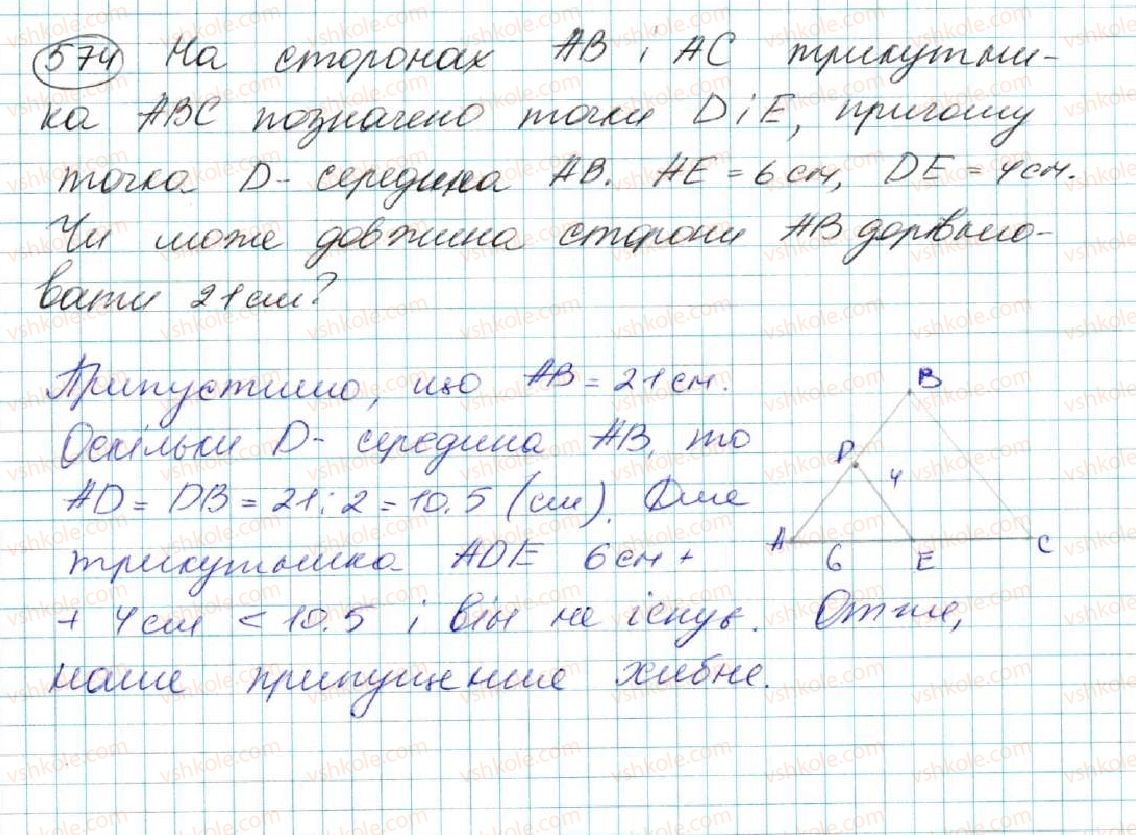 574 На сторонах AB і AC трикутни-
ка ABC позначено точки D і E, причому
точка D - середина AB. AE = 6 см, DE = 4 см.
Чи може довжина сторони AB дорівню-
вати 21 см?
Припустимо, що AB = 21 см.
Оскільки D - середина AB, то
AD = DB = 21 : 2 = 10.5 (см). Для
трикутника ADE 6 см +
+ 4 см < 10.5 і він не існує. Отже,
наше припущення хибне.
B
D
4
A
6
E
C